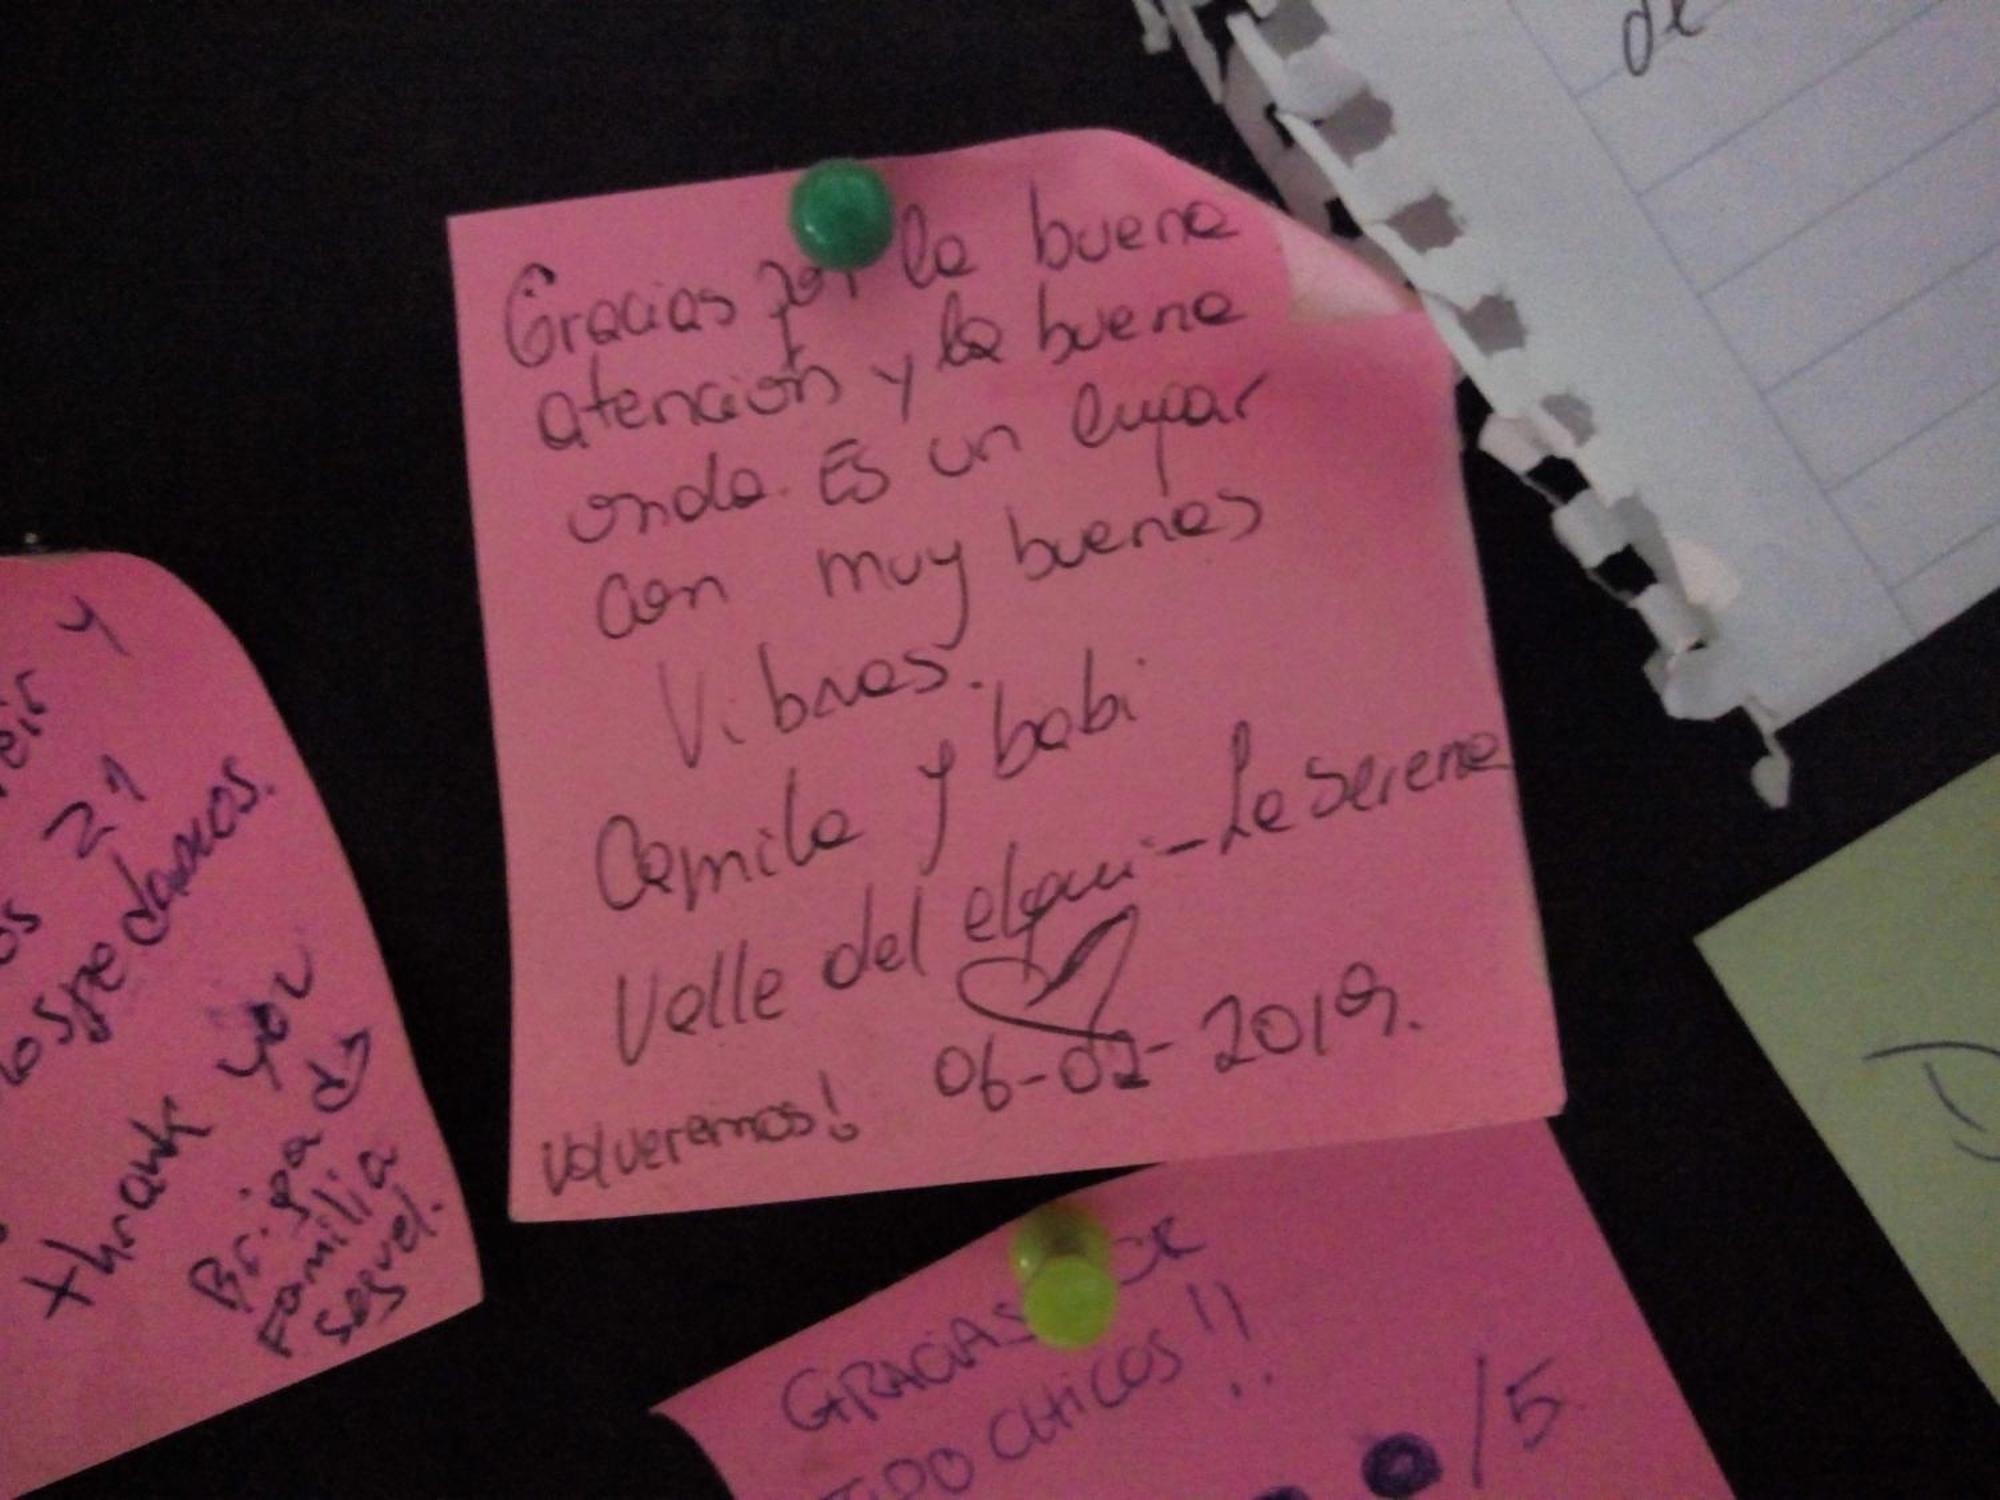 Gracias por la buena
atención y la buena
onda. Es un lugar
con muy buenas
Vibras.
Camila y babi
Valle del elqui - La Serena
06-02-2019.
volveremos!
de
y
21
hospedamos.
thrank you
Familia
GRACIAS POR
TODO CHICOS!!
/5